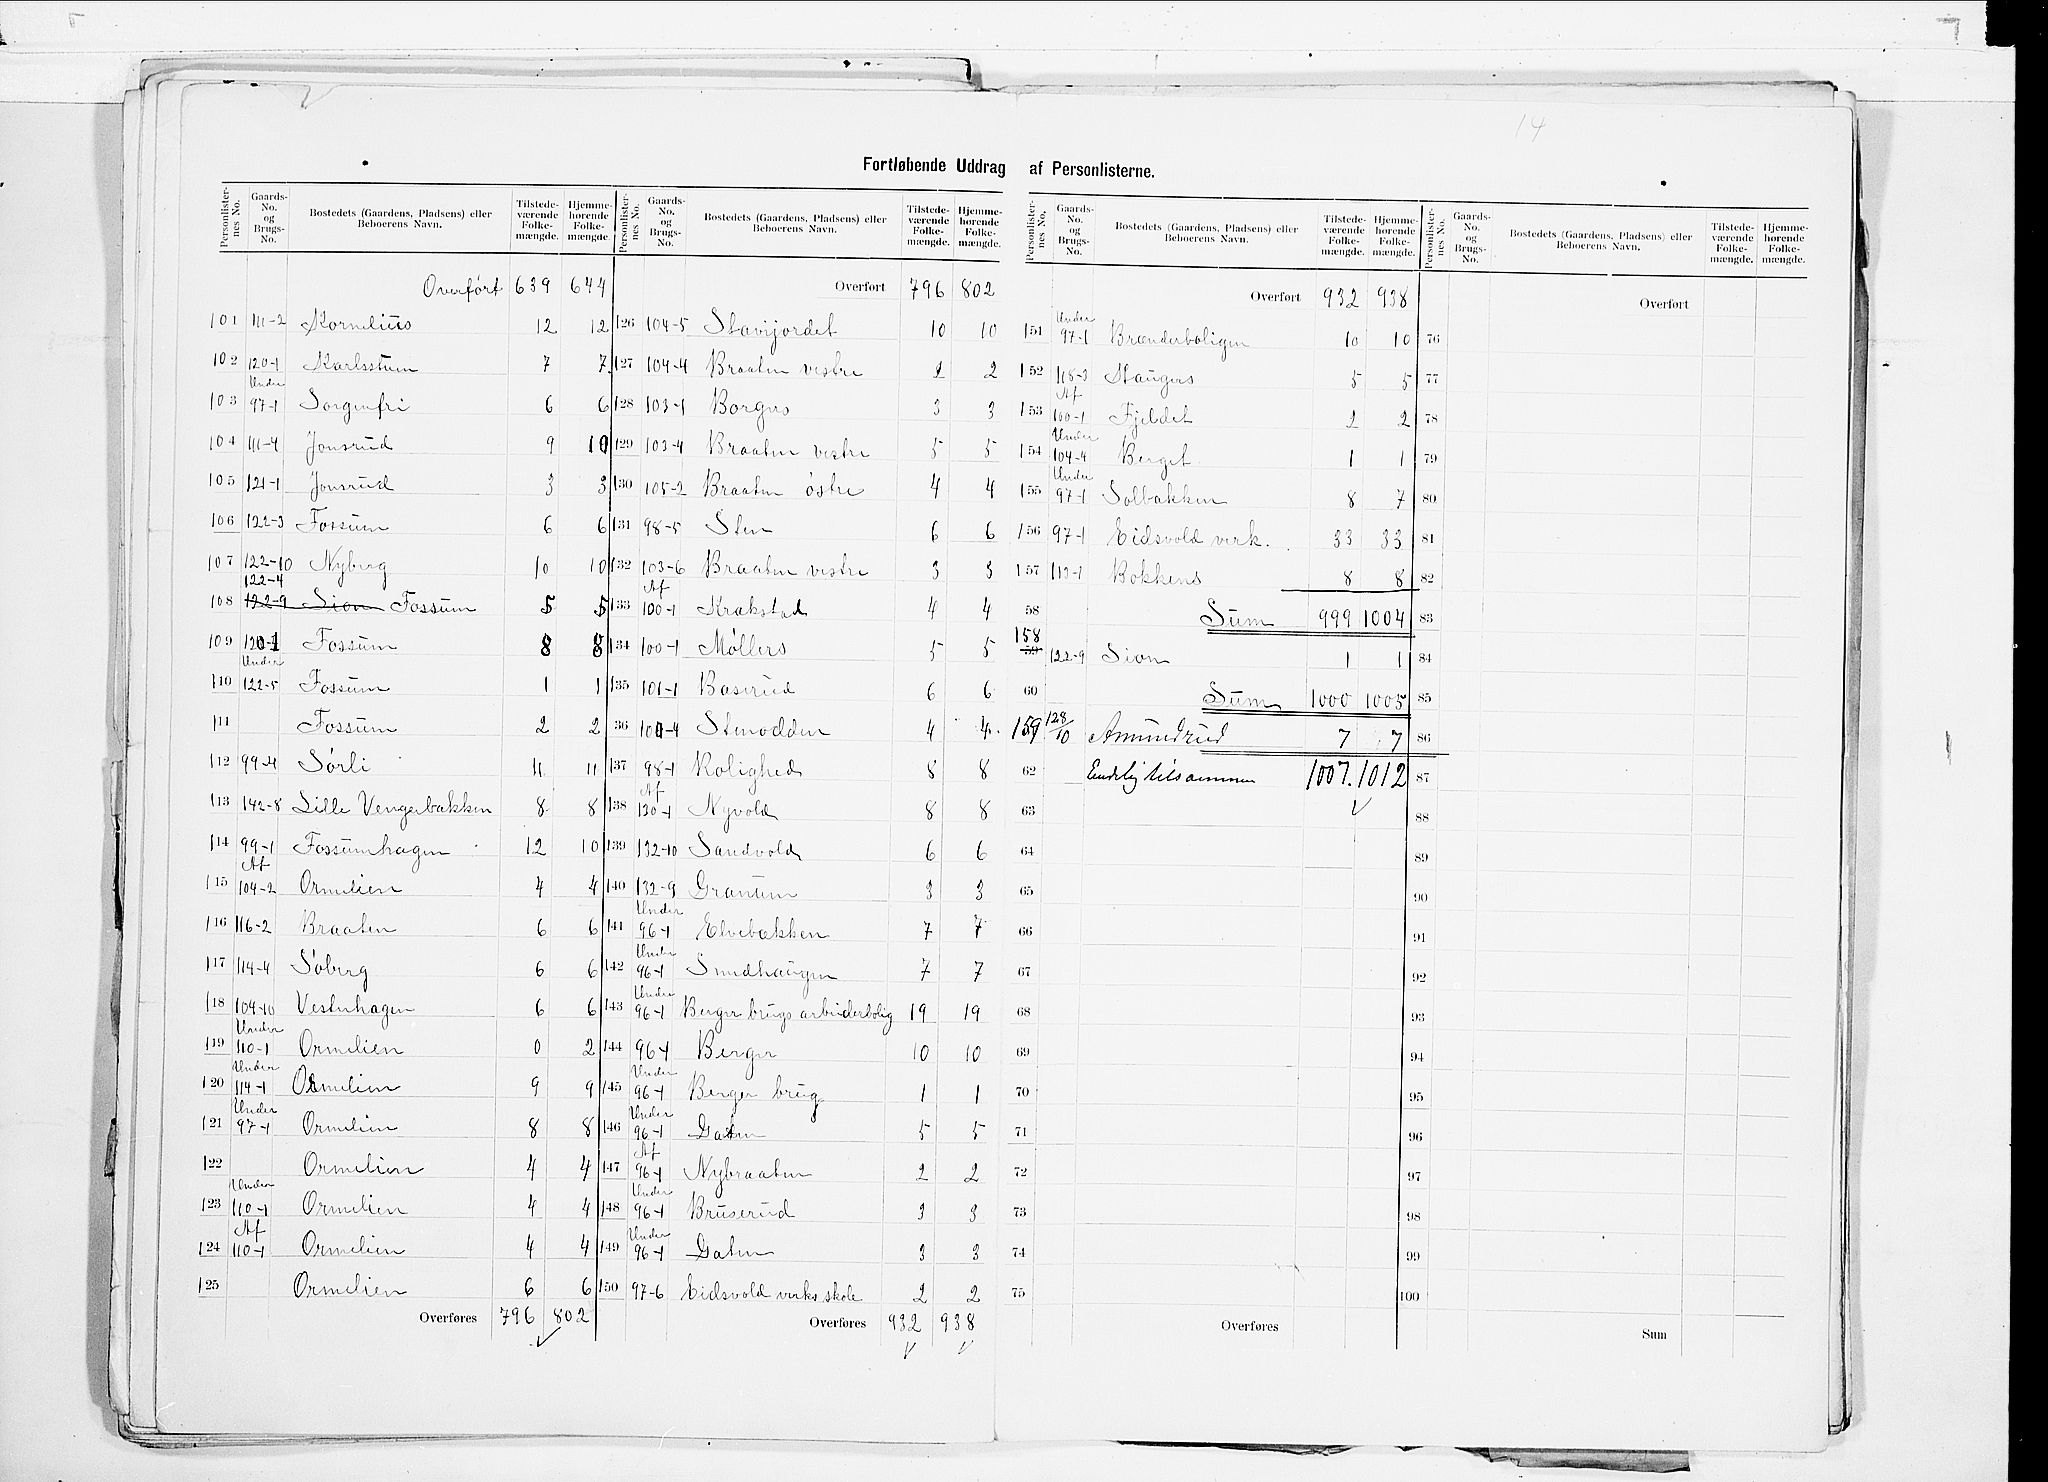 14
Fortløbende Uddrag af Personlisterne.
Personlister-nes No. | Gaards-No. og Brugs-No. | Bostedets (Gaardens, Pladsens) eller Beboerens Navn. | Tilstede-værende Folke-mængde. | Hjemme-hørende Folke-mængde.
Overført 639 644
101 111-2 Kornelius 12 12
102 120-1 Karlsstuen 7 7
103 Under 97-1 Sorgenfri 6 6
104 111-4 Jonsrud 9 10
105 121-1 Jonsrud 3 3
106 122-3 Fossum 6 6
107 122-10 Nyberg 10 10
108 122-4 122-9 Sion Fossum 5 5
109 120-1 Fossum 8 8
110 Under 122-5 Fossum 1 1
111 Fossum 2 2
112 99-4 Sørli 11 11
113 142-8 Lille Vengerbakken 8 8
114 99-1 Fossumhagen 12 10
115 Af 104-2 Ormelien 4 4
116 116-2 Braaten 6 6
117 114-4 Søberg 6 6
118 104-10 Vestenhagen 6 6
119 Under 110-1 Ormelien 0 2
120 Under 114-1 Ormelien 9 9
121 Under 97-1 Ormelien 8 8
122 Ormelien 4 4
123 Under 110-1 Ormelien 4 4
124 Af 110-1 Ormelien 4 4
125 Ormelien 6 6
Overføres 796 802
Personlister-nes No. | Gaards-No. og Brugs-No. | Bostedets (Gaardens, Pladsens) eller Beboerens Navn. | Tilstede-værende Folke-mængde. | Hjemme-hørende Folke-mængde.
Overført 796 802
126 104-5 Stavijordet 10 10
127 104-4 Braaten vestre 2 2
128 103-1 Borgus 3 3
129 103-4 Braaten vestre 5 5
130 105-2 Braaten østre 4 4
131 98-5 Sten 6 6
132 103-6 Braaten vestre 3 3
133 Af 100-1 Krakstad 4 4
134 100-1 Møllers 5 5
135 101-1 Baserud 6 6
36 101-4 Stenodden 4 4
137 98-1 Rolighed 8 8
138 Af 130-1 Nyvold 8 8
139 132-10 Sandvold 6 6
140 132-9 Granum 3 3
141 Under 96-1 Elvebakken 7 7
142 Under 96-1 Smedhaugen 7 7
143 Under 96-1 Berger brugs arbeiderbolig 19 19
144 96-1 Berger 10 10
145 Under 96-1 Berger brug 1 1
146 Under 96-1 Gaten 5 5
147 Af 96-1 Nybraaten 2 2
148 Under 96-1 Bruserud 3 3
149 Under 96-1 Gaten 3 3
150 97-6 Eidsvold verks skole 2 2
Overføres 932 938
Personlister-nes No. | Gaards-No. og Brugs-No. | Bostedets (Gaardens, Pladsens) eller Beboerens Navn. | Tilstede-værende Folke-mængde. | Hjemme-hørende Folke-mængde.
Overført 932 938
151 Under 97-1 Brænderboligen 10 10
152 118-3 Haugers 5 5
153 Af 100-1 Fjeldet 2 2
154 Under 104-4 Berget 1 1
155 Under 97-1 Solbakken 8 7
156 97-1 Eidsvold verk. 33 33
157 113-1 Bokkens 8 8
58 Sum 999 1004
158 59 122-9 Sion 1 1
60 Sum 1000 1005
159 128/10 Amundrud 7 7
62 Endelig tilsammen 1007. 1012
63
64
65
66
67
68
69
70
71
72
73
74
75
Overføres
Personlister-nes No. | Gaards-No. og Brugs-No. | Bostedets (Gaardens, Pladsens) eller Beboerens Navn. | Tilstede-værende Folke-mængde. | Hjemme-hørende Folke-mængde.
Overført
76
77
78
79
80
81
82
83
84
85
86
87
88
89
90
91
92
93
94
95
96
97
98
99
100
Sum